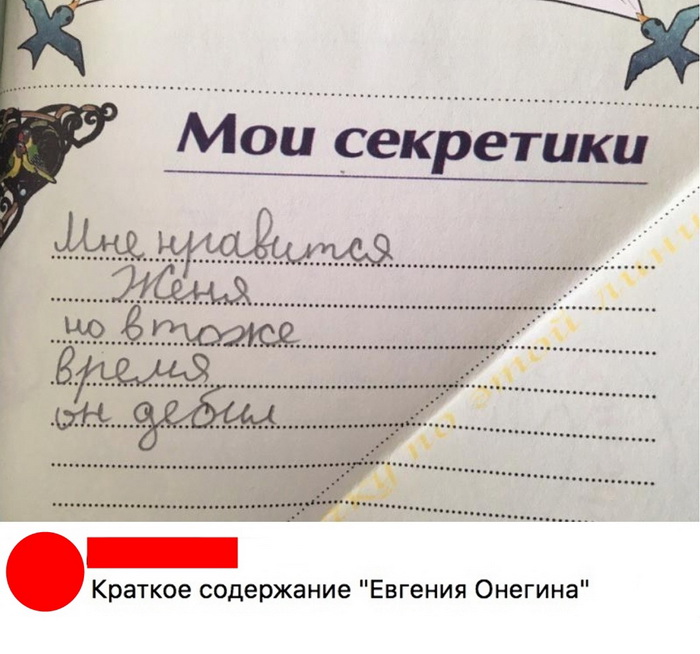 Мои секретики
Мне нравится
Женя
но втоже
время
он дебил
ку по этой лини
Краткое содержание "Евгения Онегина"